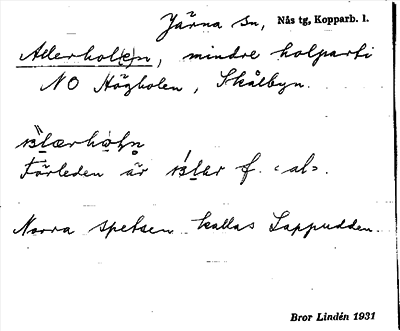 Järna sn, Nås tg, Kopparb. l.
Allerhol(e)n, mindre holparti
NO Högholen, Skålbyn.
Förleden är f. "al".
Norra spetsen kallas Lappudden.
Bror Lindén 1931